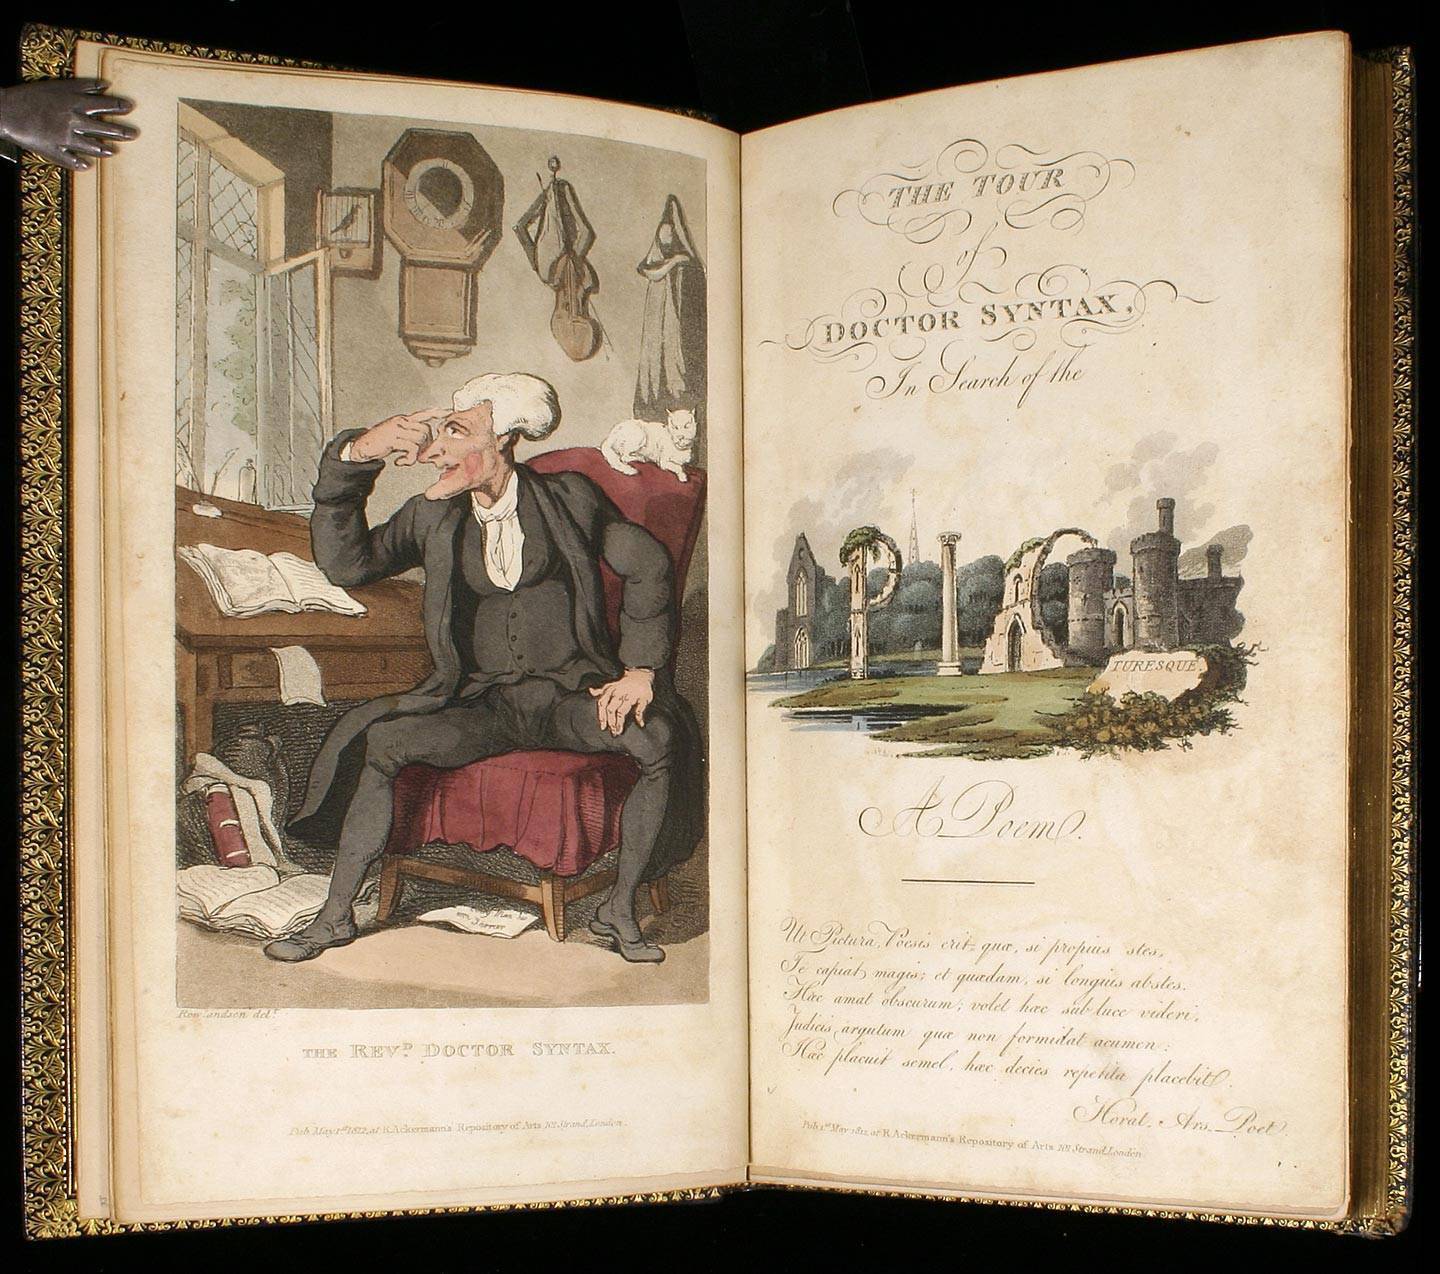 Rowlandson delt.
THE REVD. DOCTOR SYNTAX.
Pub. May 1st 1812, at R. Ackermann's Repository of Arts 101 Strand, London.
THE TOUR
of
DOCTOR SYNTAX,
In Search of the
PIC
TURESQUE.
A Poem.
Ut Pictura, Poesis erit; quæ, si propius stes,
Te capiat magis; et quædam, si longius abstes.
Hæc amat obscurum; volet hæc sub luce videri,
Judicis argutum quæ non formidat acumen:
Hæc placuit semel, hæc decies repetita placebit.
Horat. Ars. Poet.
Pub. 1st May 1812, at R. Ackermann's Repository of Arts 101 Strand, London.